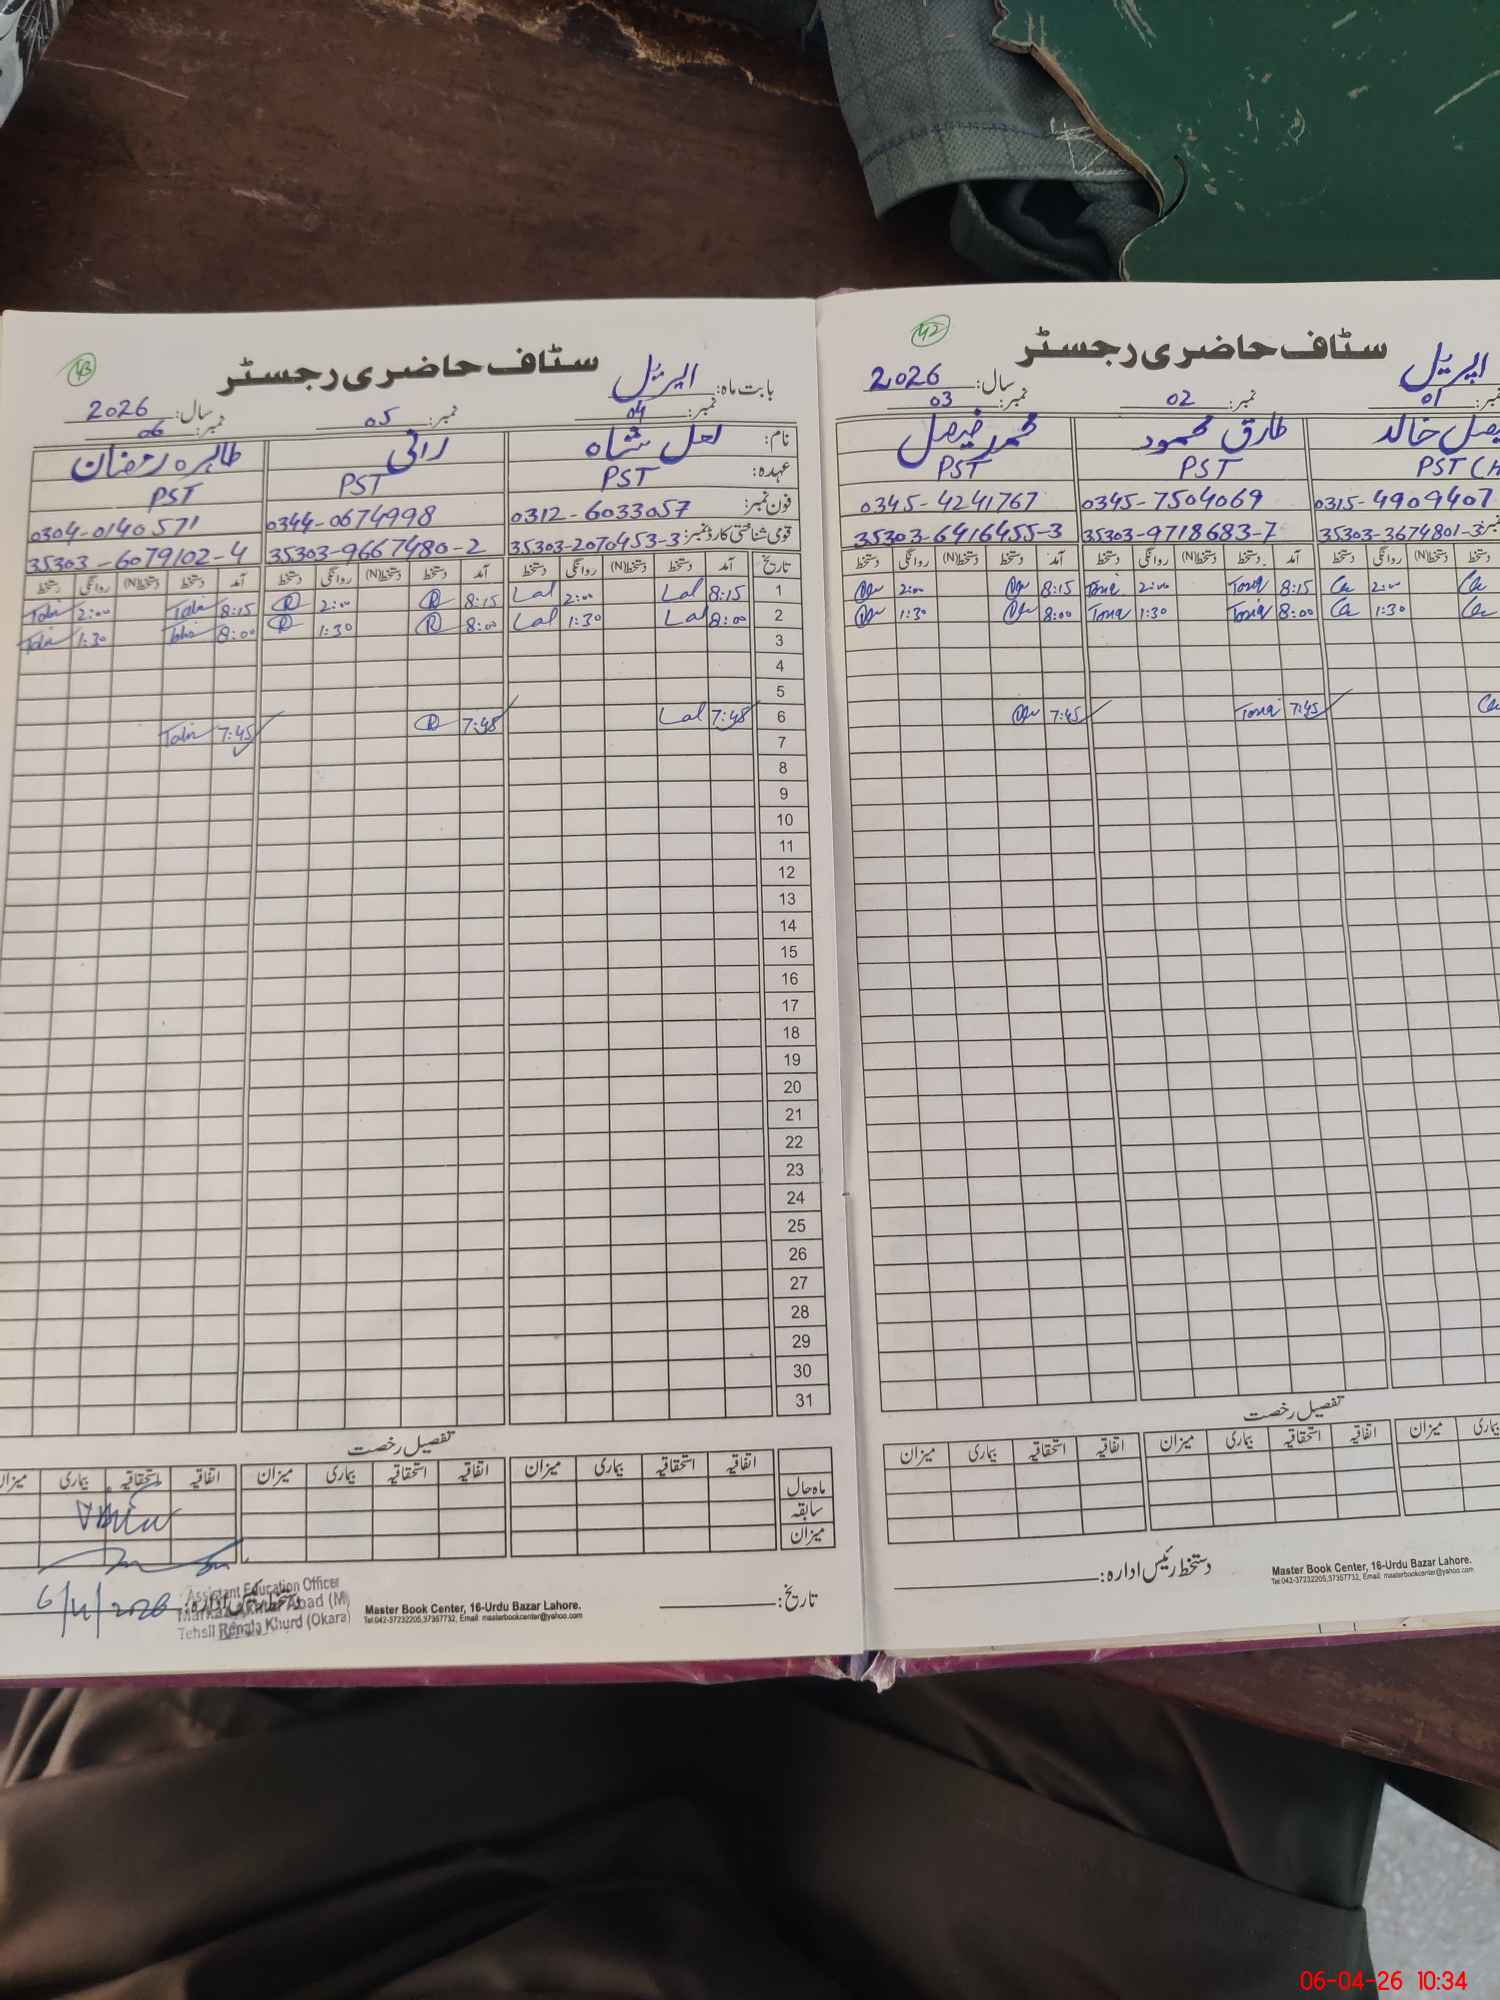 42
سٹاف حاضری رجسٹر
اپریل
سال: 2026
نمبر: 01
نمبر: 02
03
خالد
طارق محمود
محمد فیصل
PST
PST
PST
0315-4909407
0345-7504069
0345-4241767
35303-3674801-3
35303-9718683-7
35303-6416455-3
دستخط روانگی دستخط(N) دستخط
آمد دستخط دستخط(N) روانگی دستخط
آمد دستخط دستخط(N) روانگی دستخط
2:00
8:15 2:00
8:15 2:00
1:30
8:00 1:30
8:00 1:30
7:45
7:45
تفصیل رخصت
بیماری میزان
اتفاقیہ استحقاقیہ بیماری میزان
اتفاقیہ استحقاقیہ بیماری میزان
دستخط رئیس ادارہ:
Master Book Center, 16-Urdu Bazar Lahore.
Tel:042-37232205,37357732, Email: masterbookcenter@yahoo.com
43
سٹاف حاضری رجسٹر
بابت ماہ: اپریل
سال: 2026
نمبر: 04
نمبر: 05
نمبر: 06
نام: لعل شاہ
رانی
طاہرہ رمضان
عہدہ: PST
PST
PST
فون نمبر: 0312-6033057
0344-0674998
0304-0140571
قومی شناختی کارڈ نمبر: 35303-2070453-3
35303-9667480-2
35303-6079102-4
تاریخ
آمد دستخط دستخط(N) روانگی دستخط
آمد دستخط دستخط(N) روانگی دستخط
آمد دستخط دستخط(N) روانگی دستخط
1 8:15 Lal 2:00 Lal 8:15 2:00 8:15 2:00
2 8:00 Lal 1:30 Lal 8:00 1:30 8:00 1:30
3
4
5
6 7:45 Lal 7:45 7:45
7
8
9
10
11
12
13
14
15
16
17
18
19
20
21
22
23
24
25
26
27
28
29
30
31
تفصیل رخصت
اتفاقیہ استحقاقیہ بیماری میزان
اتفاقیہ استحقاقیہ بیماری میزان
اتفاقیہ استحقاقیہ بیماری میزان
ماہ حال
سابقہ
میزان
تاریخ:
Master Book Center, 16-Urdu Bazar Lahore.
Tel:042-37232205,37357732, Email: masterbookcenter@yahoo.com
دستخط رئیس ادارہ:
6/4/2026
Assistant Education Officer
Abad (M)
Tehsil Renala Khurd (Okara)
06-04-26 10:34